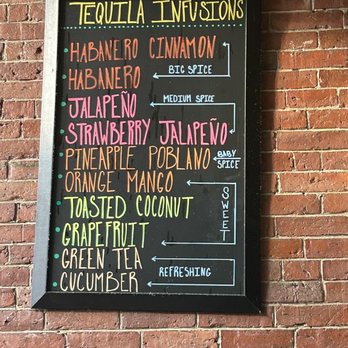 TEQUILA INFUSIONS
HABANERO CINNAMON
HABANERO
BIG SPICE
JALAPEÑO
MEDIUM SPICE
STRAWBERRY JALAPEÑO
PINEAPPLE POBLANO
BABY SPICE
ORANGE MANGO
TOASTED COCONUT
SWEET
GRAPEFRUIT
GREEN TEA
REFRESHING
CUCUMBER